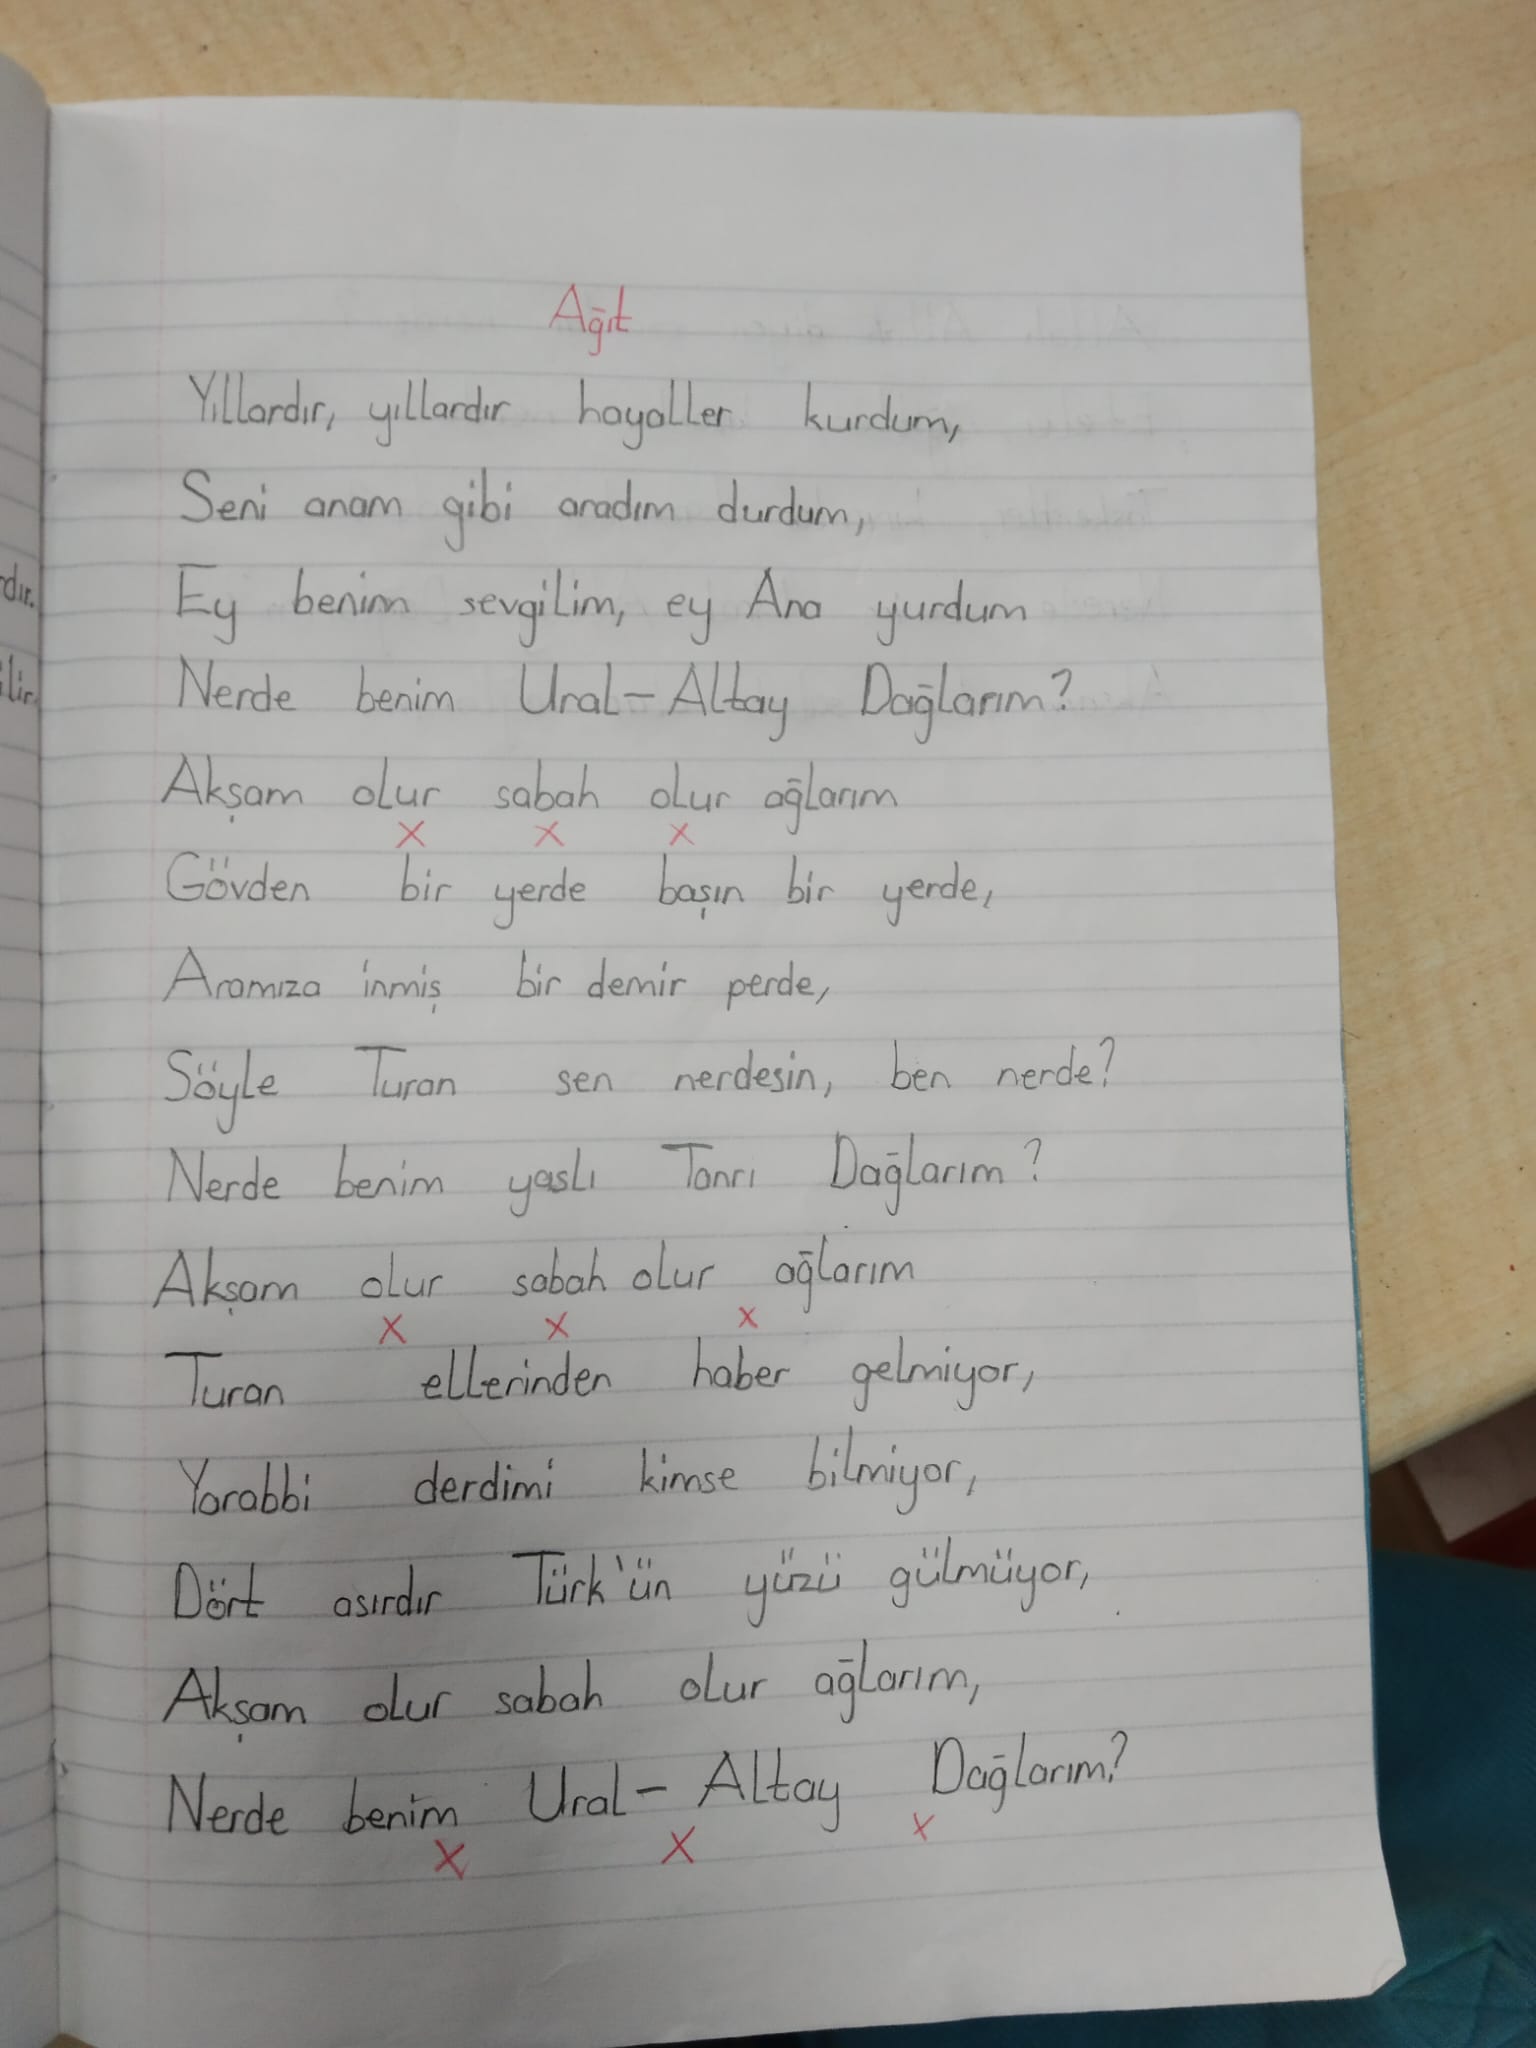 Ağıt
Yıllardır, yıllardır hayaller kurdum,
Seni anam gibi aradım durdum,
Ey benim sevgilim, ey Ana yurdum
Nerde benim Ural-Altay Dağlarım?
Akşam olur sabah olur ağlarım
x x x
Gövden bir yerde başın bir yerde,
Aramıza inmiş bir demir perde,
Söyle Turan sen nerdesin, ben nerde?
Nerde benim yaslı Tanrı Dağlarım?
Akşam olur sabah olur ağlarım
x x x
Turan ellerinden haber gelmiyor,
Yarabbi derdimi kimse bilmiyor,
Dört asırdır Türk'ün yüzü gülmüyor,
Akşam olur sabah olur ağlarım,
Nerde benim Ural-Altay Dağlarım?
x x x
dır.
ilir.